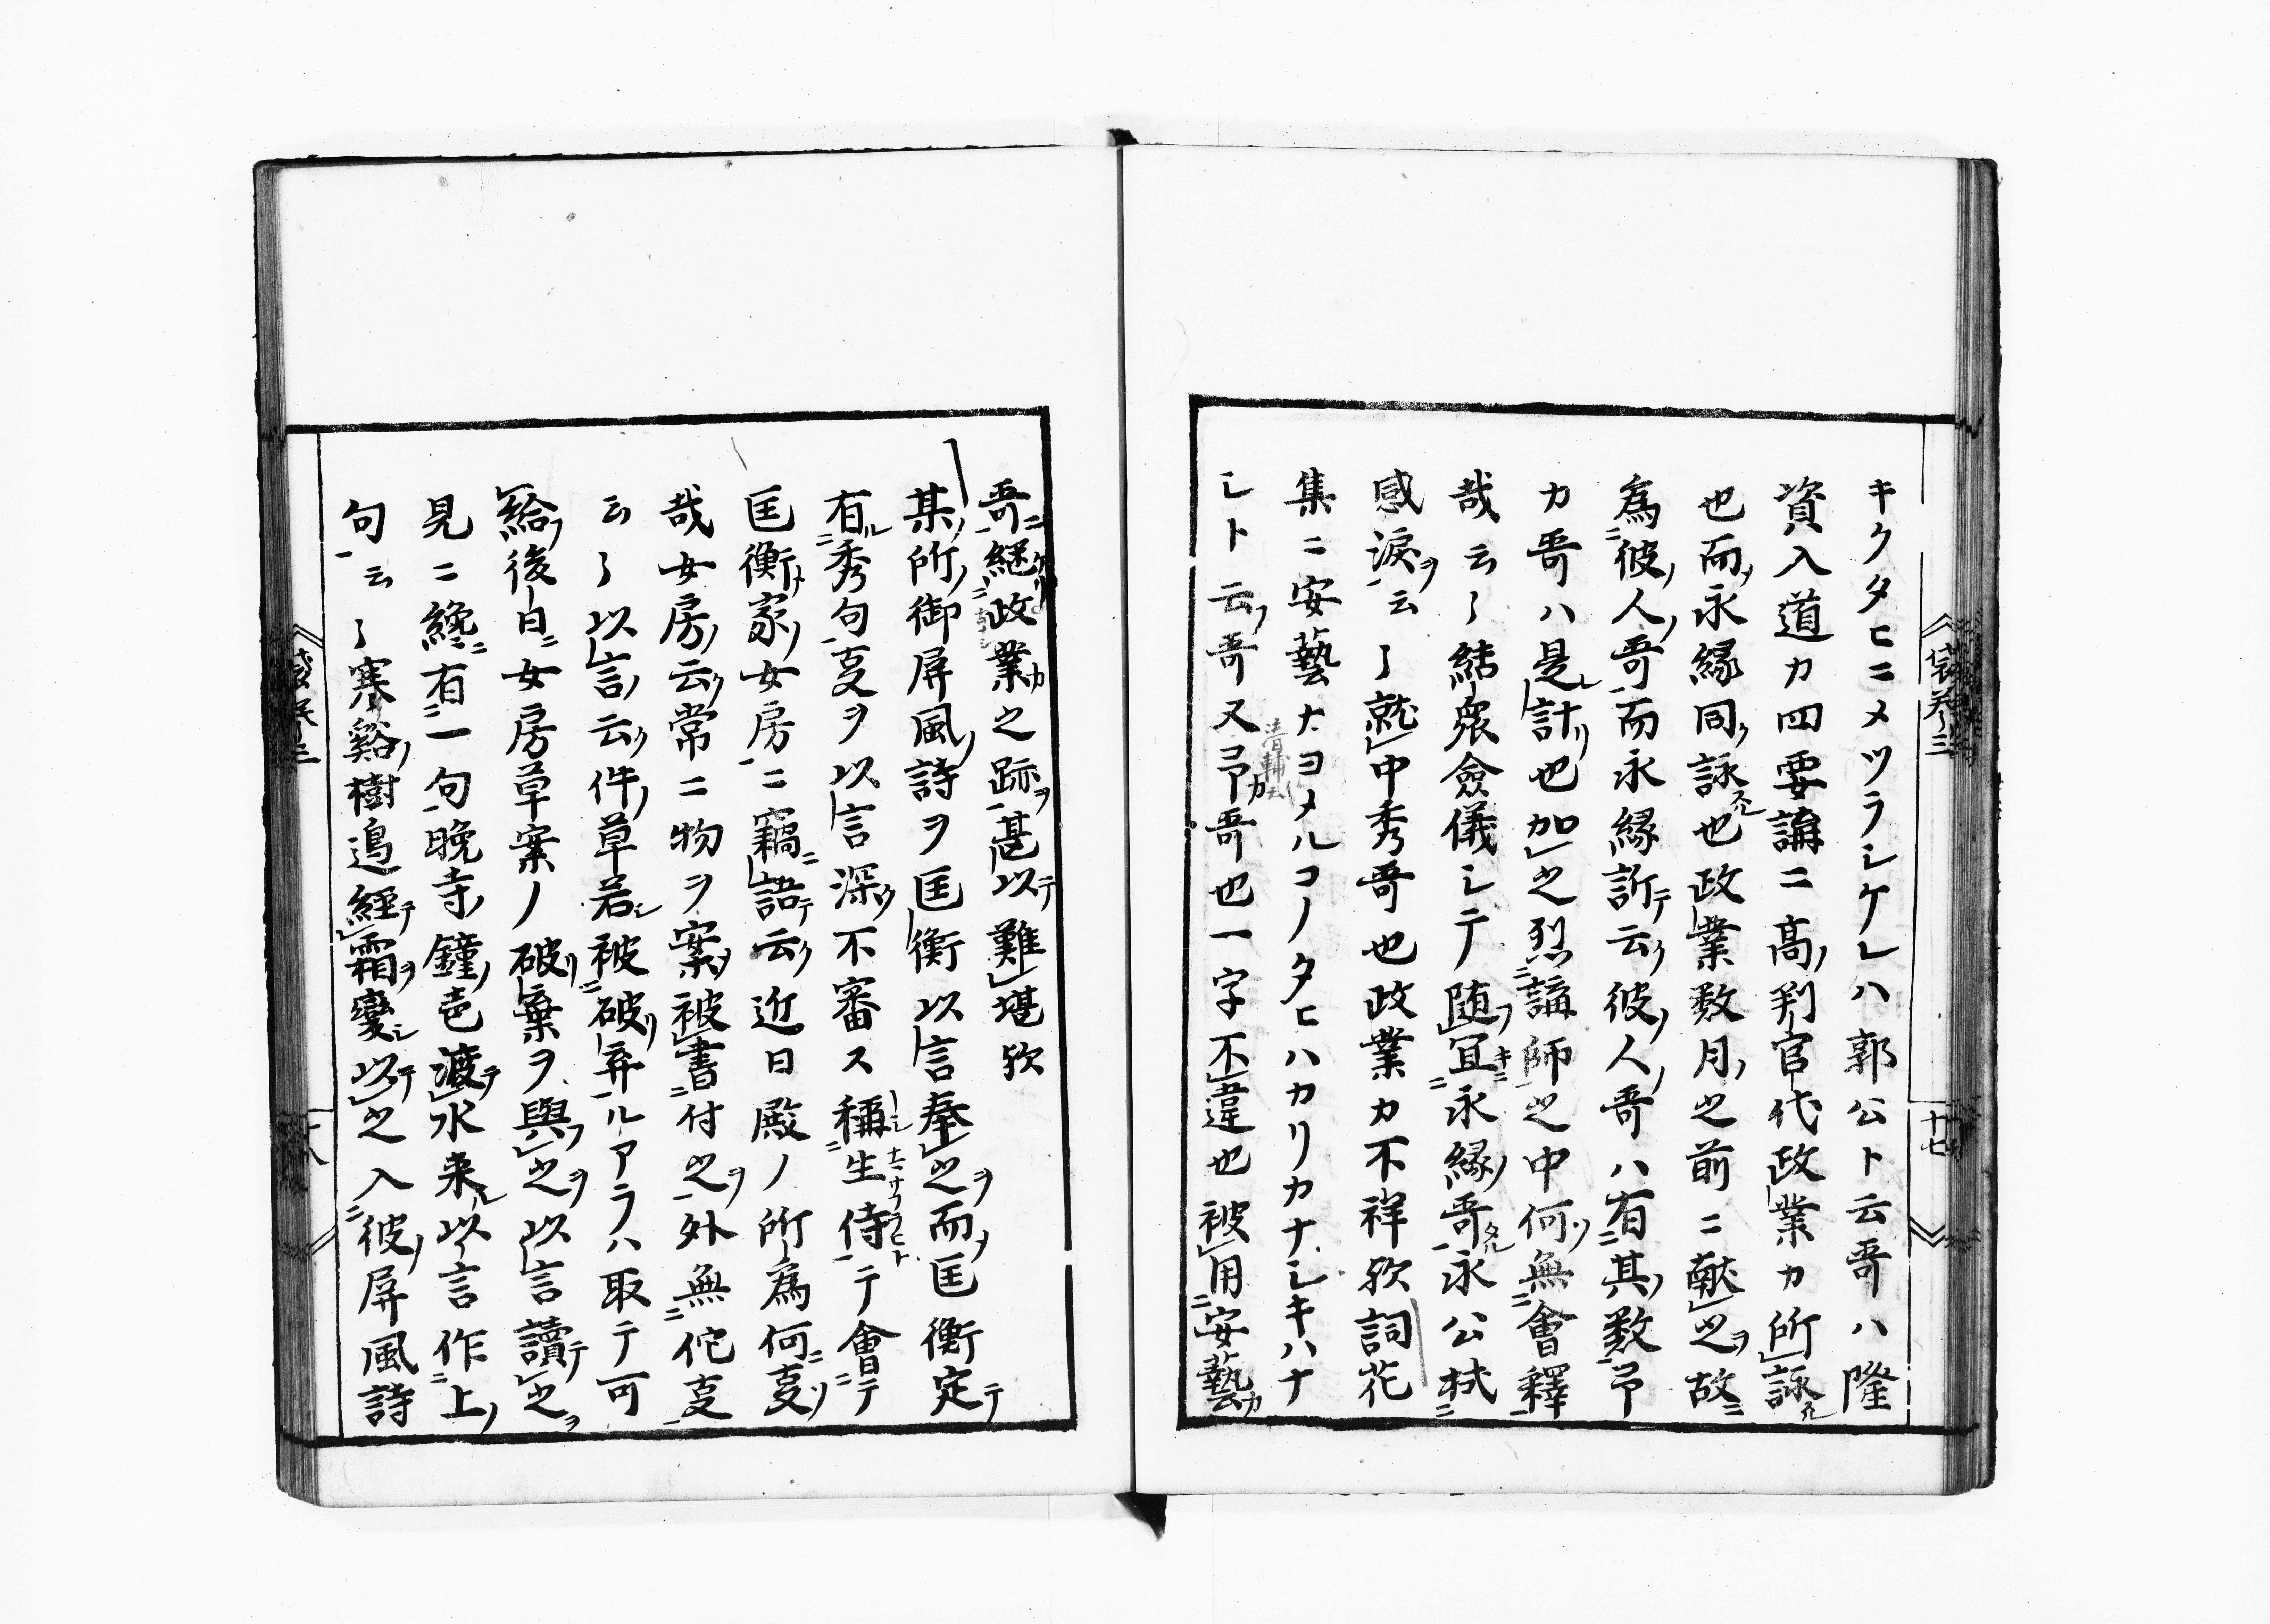 キクタヒニメツラシケレハ郭公ト云哥ハ隆
資入道カ四要講ニ高判官代政業カ所詠
也而永縁同詠也政業数月之前ニ献之故
為彼人哥而永縁訴云彼人哥ハ有其数予
カ哥ハ是計也加之烈講師之中何無會釋
哉云了結衆僉儀シテ随冝永縁哥永公拭
感涙云了就中秀哥也政業カ不祥歟詞花
集ニ安藝カヨメルコノタヒハカリカナシキハナ
シト云哥又予哥也一字不違也被用安藝
哥継政業之跡甚以難堪歟
某所御屏風詩ヲ匡衡以言奉之而匡衡定
有秀句㕝ヲ以言深不審ス稱生侍テ會テ
匡衡家女房ニ竊語云近日殿ノ所為何㕝
哉女房云常ニ物ヲ案被書付之外無佗㕝
云了以言云件草若被破弃ルアラハ取テ可
給後日女房草案ノ破棄ヲ與之以言讀之
見ニ纔有一句晩寺鐘色渡水来以言作上
句云了寒谿樹邉經霜變以之入彼屏風詩
袋草三
十七